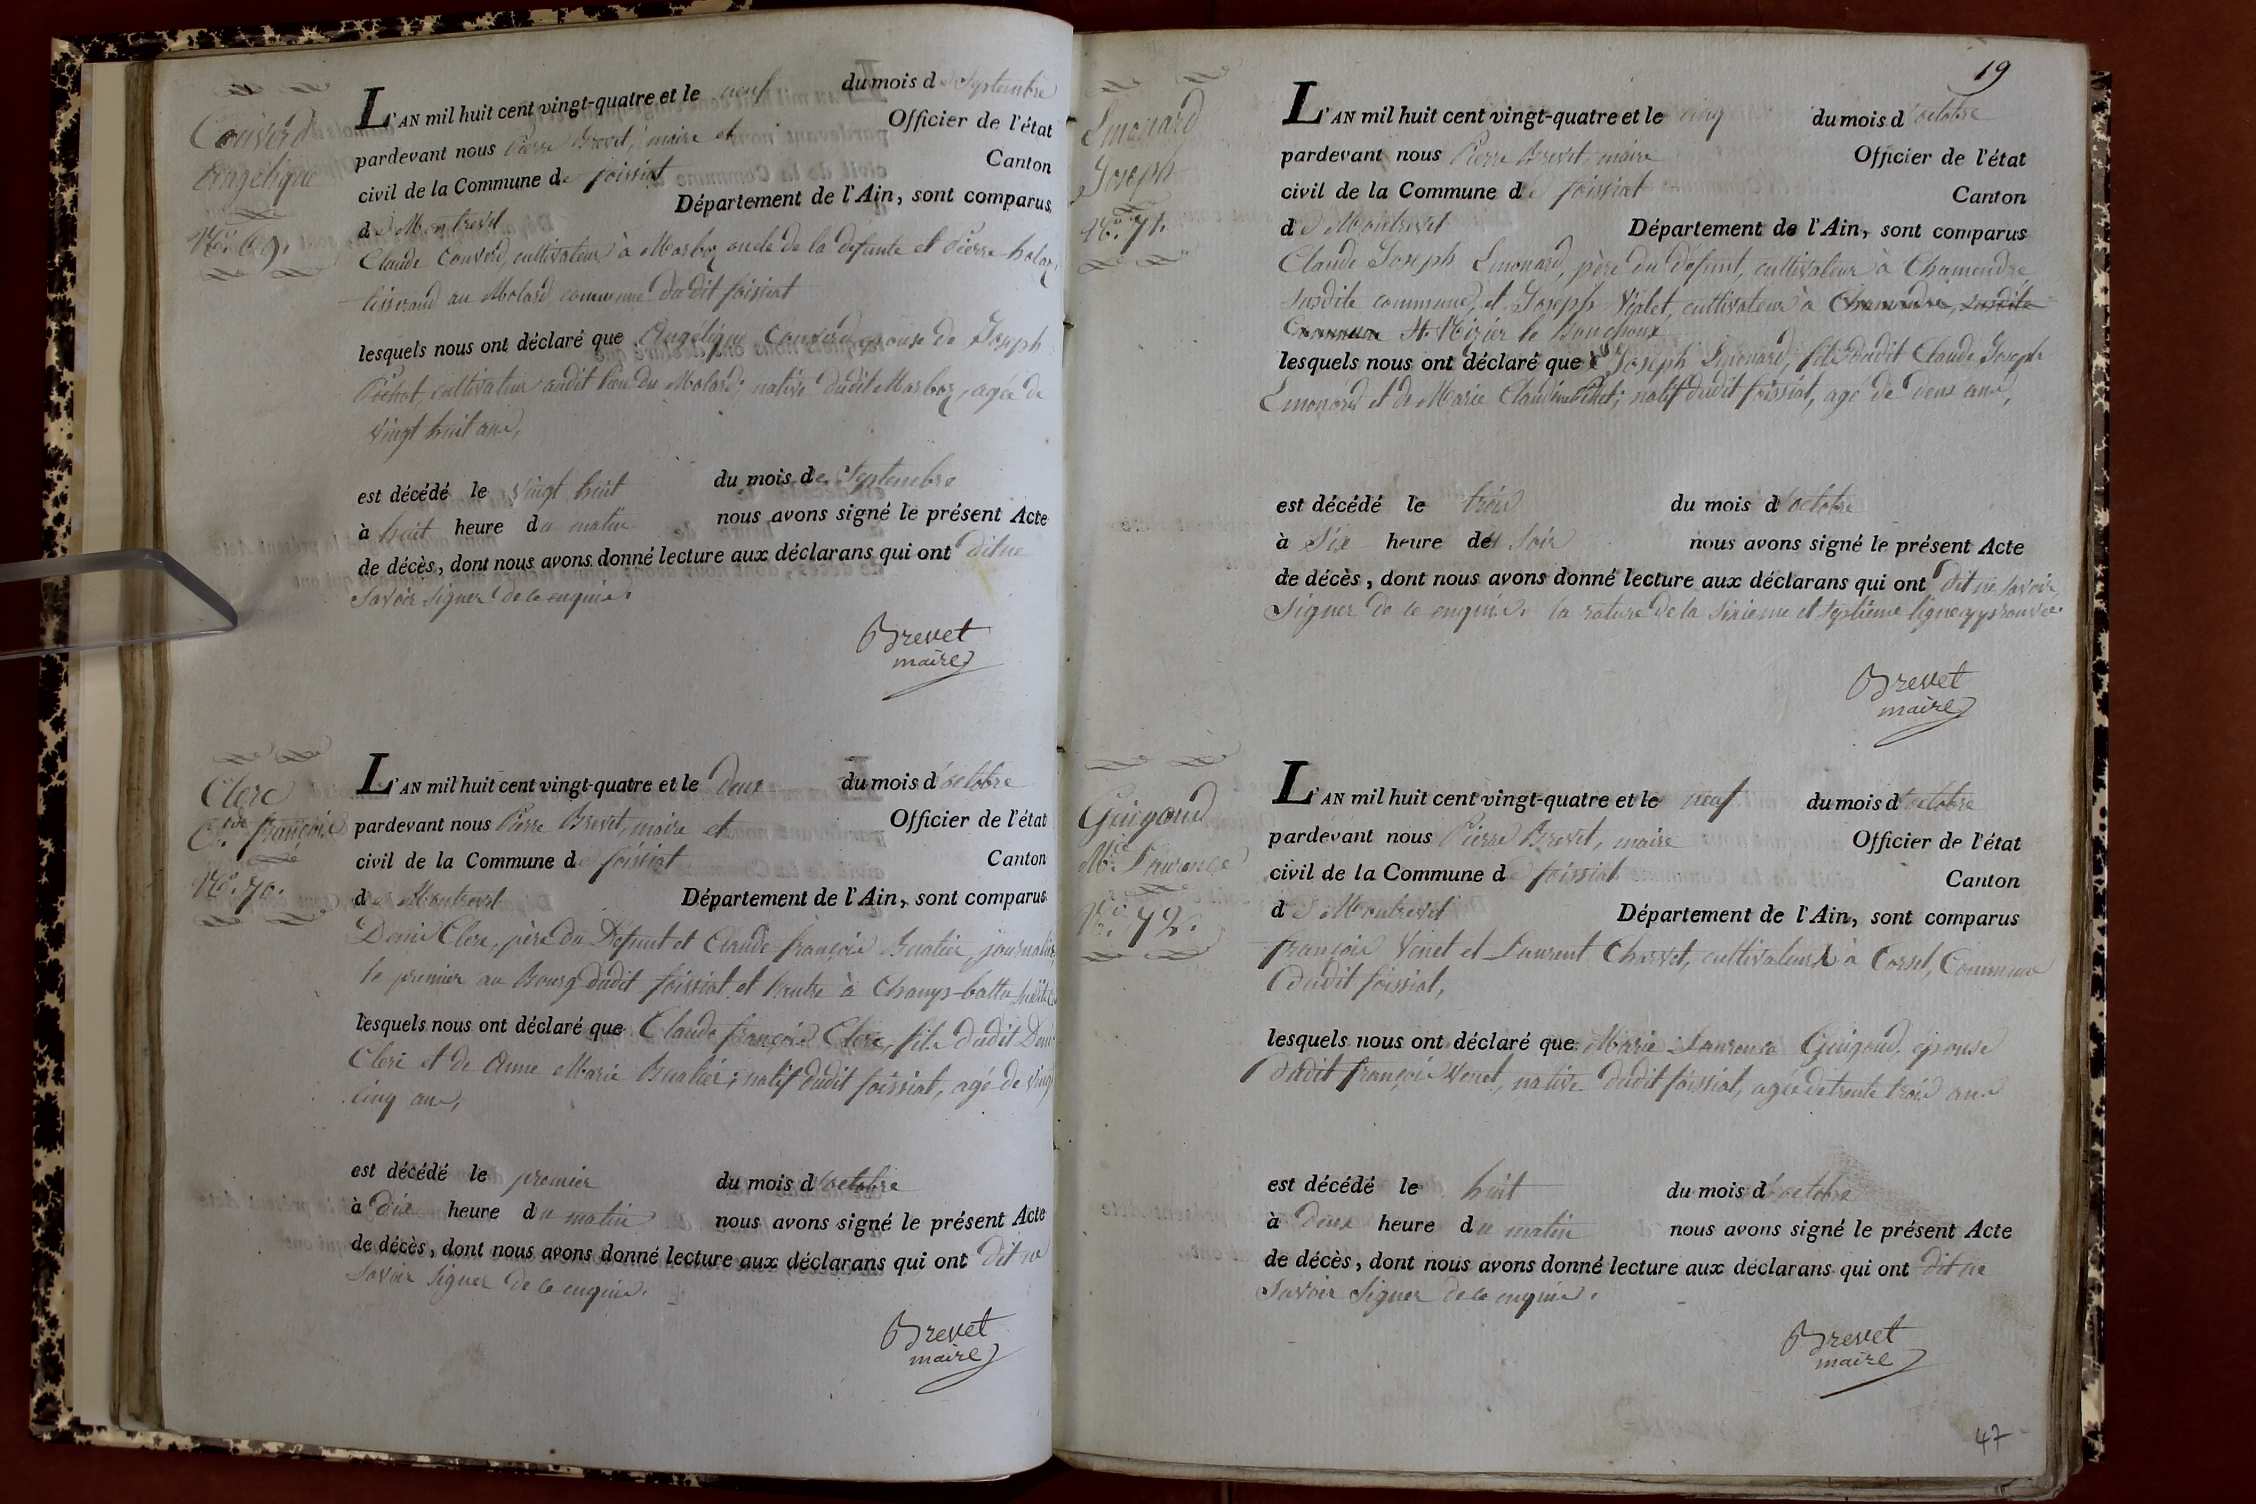 Couverd
Angélique
N.º 69.
L'AN mil huit cent vingt-quatre et le neuf du mois de Septembre
pardevant nous Pierre Brevet, maire et Officier de l'état
civil de la Commune de foissiat Canton
de Montrevel Département de l'Ain, sont comparus
Claude Couverd, cultivateur à Marboz oncle de la defunte et Pierre
tisserand au Molard commune dudit foissiat
lesquels nous ont déclaré que Angélique Couverd epouse de Joseph
Pochat, cultivateur audit lieu du Molard; native dudit Marboz, agée de
vingt huit ans,
est décédé le vingt huit du mois de Septembre
à huit heure du matin nous avons signé le présent Acte
de décès, dont nous avons donné lecture aux déclarans qui ont dit ne
savoir signer de ce enquis.
Brevet
maire
Clerc
Cl.de françois
N.º 70.
L'AN mil huit cent vingt-quatre et le deux du mois d'octobre
pardevant nous Pierre Brevet, maire et Officier de l'état
civil de la Commune de foissiat Canton
de Montrevel Département de l'Ain, sont comparus
Denis Clerc, père du Defunt et Claude françois Buatier, journalier,
le premier au Bourg dudit foissiat et l'autre à Champ-battu
lesquels nous ont déclaré que Claude françois Clerc, fils dudit Denis
Clerc et de Anne Marie Buatier; natif dudit foissiat, agé de vingt
cinq ans,
est décédé le premier du mois d'octobre
à dix heure du matin nous avons signé le présent Acte
de décès, dont nous avons donné lecture aux déclarans qui ont dit ne
savoir signer de ce enquis.
Brevet
maire
19
Emonard
Joseph
N.º 71.
L'AN mil huit cent vingt-quatre et le cinq du mois d'octobre
pardevant nous Pierre Brevet, maire Officier de l'état
civil de la Commune de foissiat Canton
de Montrevel Département de l'Ain, sont comparus
Claude Joseph Emonard, père du defunt, cultivateur à Chamendre
susdite commune, et Joseph Violet, cultivateur à Chamendre, susdite
Commune St. Nizier le Bouchoux
lesquels nous ont déclaré que Joseph Emonard, fils dudit Claude Joseph
Emonard et de Marie Claudine; natif dudit foissiat, agé de deux ans,
est décédé le trois du mois d'octobre
à Six heure de Soir nous avons signé le présent Acte
de décès, dont nous avons donné lecture aux déclarans qui ont dit ne savoir
signer de ce enquis. la rature de la sixieme et septième ligne approuvée
Brevet
maire
Guigoud
M.ie Laurence
N.º 72.
L'AN mil huit cent vingt-quatre et le neuf du mois d'octobre
pardevant nous Pierre Brevet, maire Officier de l'état
civil de la Commune de foissiat Canton
de Montrevel Département de l'Ain, sont comparus
françois Venet et Laurent Charvet, cultivateurs à Cossel, Commune
dudit foissiat,
lesquels nous ont déclaré que Marie Laurence Guigoud, épouse
dudit françois Venet, native dudit foissiat, agée de trente trois ans
est décédé le huit du mois d'octobre
à deux heure du matin nous avons signé le présent Acte
de décès, dont nous avons donné lecture aux déclarans qui ont dit ne
savoir signer de ce enquis.
Brevet
maire
47